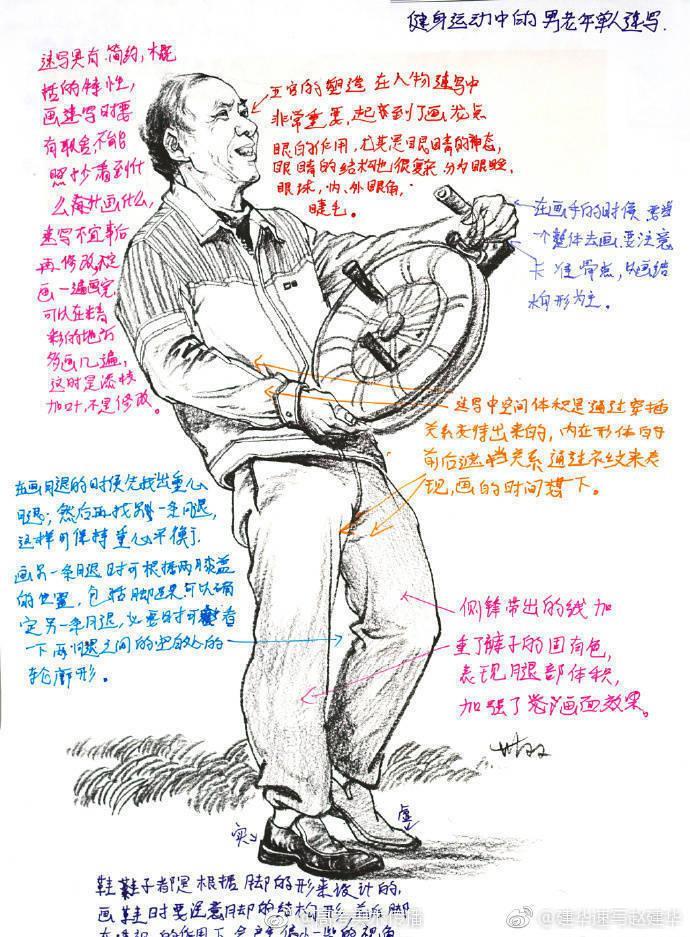 健身运动中的男老年单人速写.
速写具有简约,概
括的特性,
画速写时要
有取舍不能
照抄看到什
么就画什么,
速写不宜事后
再修改,
画一遍画完,
可以在精
彩的地方
多画几遍,
这时是添枝
加叶,不是修改。
五官的塑造 在人物速写中
非常重要,起着到了画龙点
眼的作用,尤其是眼睛的神态,
眼睛的结构也很复杂 分为眼睑,
眼球,内、外眼角,
睫毛。
在画手的时候 当
一个整体去画,要注意
卡准骨点,以画结
构形为主。
速写中空间体积是通过穿插
关系支持出来的,内在形体的
前后遮挡关系 通过衣纹来表
现,画的时间 下。
在画腿的时候先找出重心
腿;然后再找另一条腿,
这样可保持重心平衡了.
画另一条腿时可根据两膝盖
的位置,包括脚这来可以确
定另一条腿,必要时可看
一下两腿之间的空白处的
轮廓形。
侧锋带出的线加
重了裤子的固有色,
表现腿部体积,
加强了画面效果。
实
虚
鞋子都是根据脚的形来设计的,
画鞋时要注意脚的结构形
的作用下会产生
@建华速写赵建华